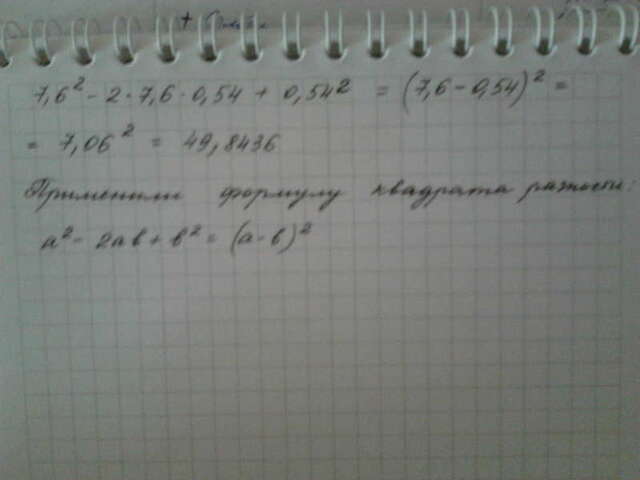 7,6² - 2 · 7,6 · 0,54 + 0,54² = (7,6 - 0,54)² =
= 7,06² = 49,8436
Применили формулу квадрата разности:
a² - 2ab + b² = (a - b)²